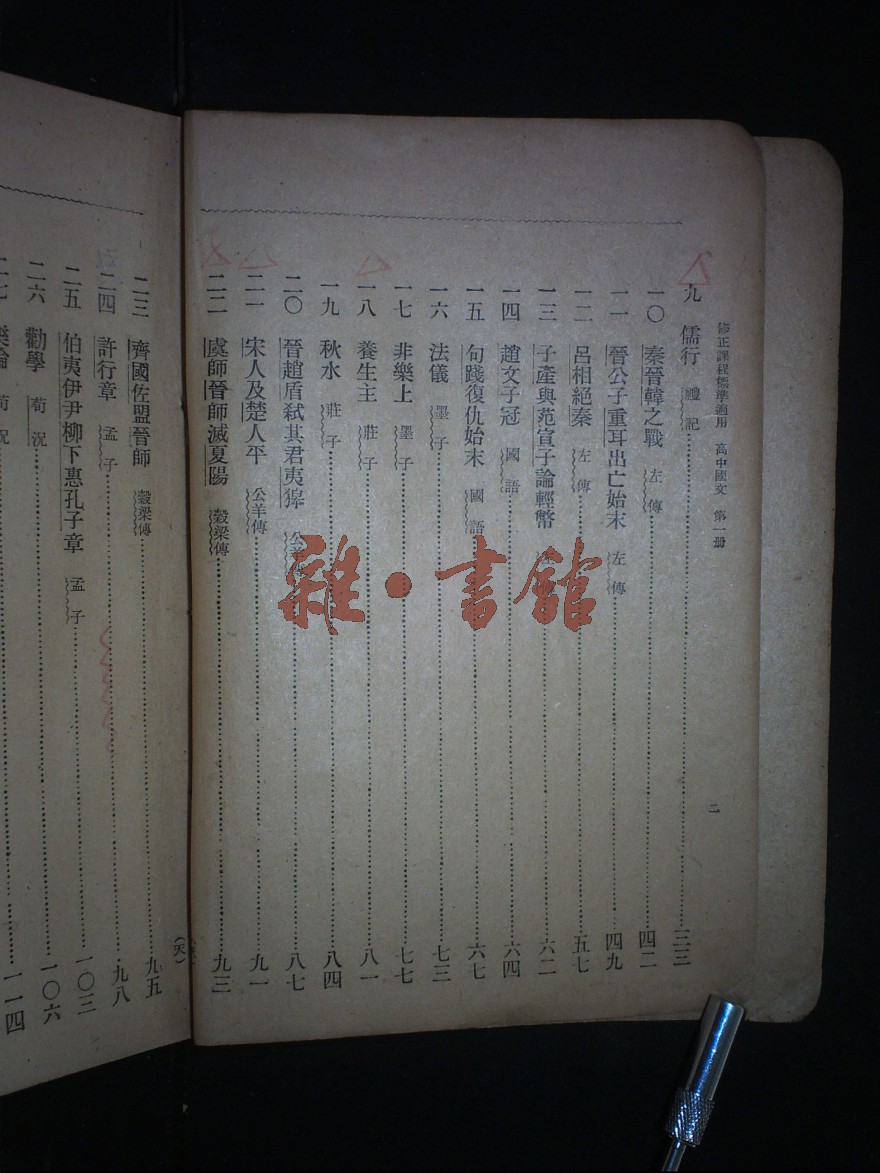 修正課程標準適用 高中國文 第一册
二
九 儒行 禮記 三三
一〇 秦晉韓之戰 左傳 四二
一一 晉公子重耳出亡始末 左傳 四九
一二 呂相絕秦 左傳 五七
一三 子產與范宣子論輕幣 六二
一四 趙文子冠 國語 六四
一五 句踐復仇始末 國語 六七
一六 法儀 墨子 七三
一七 非樂上 墨子 七七
一八 養生主 莊子 八一
一九 秋水 莊子 八四
二〇 晉趙盾弒其君夷獋 公羊 八七
二一 宋人及楚人平 公羊傳 九一
二二 虞師晉師滅夏陽 穀梁傳 九三
二三 齊國佐盟晉師 穀梁傳 九五
二四 許行章 孟子 九八
二五 伯夷伊尹柳下惠孔子章 孟子 一〇三
二六 勸學 荀況 一〇六
二七 樂論 荀況 一一四
雜·書館